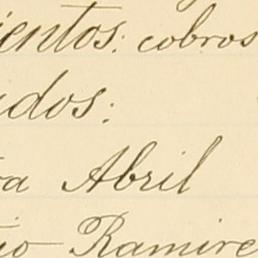 ientos: cobros
ados:
ra Abril
io Ramire